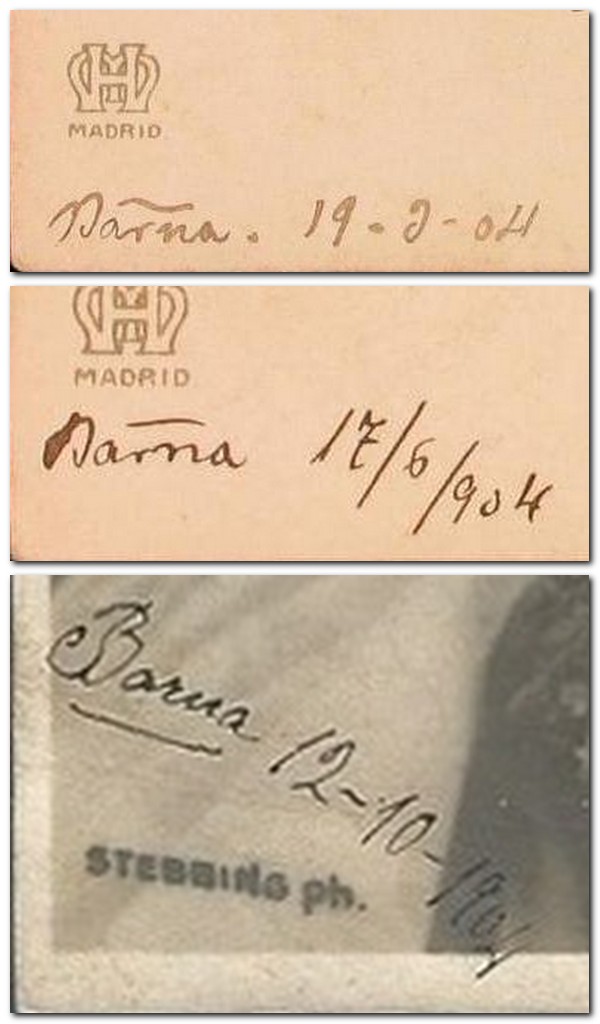 MADRID
Barña. 19-9-04
MADRID
Barña 17/6/904
Barna 12-10-1904
STEBBING ph.